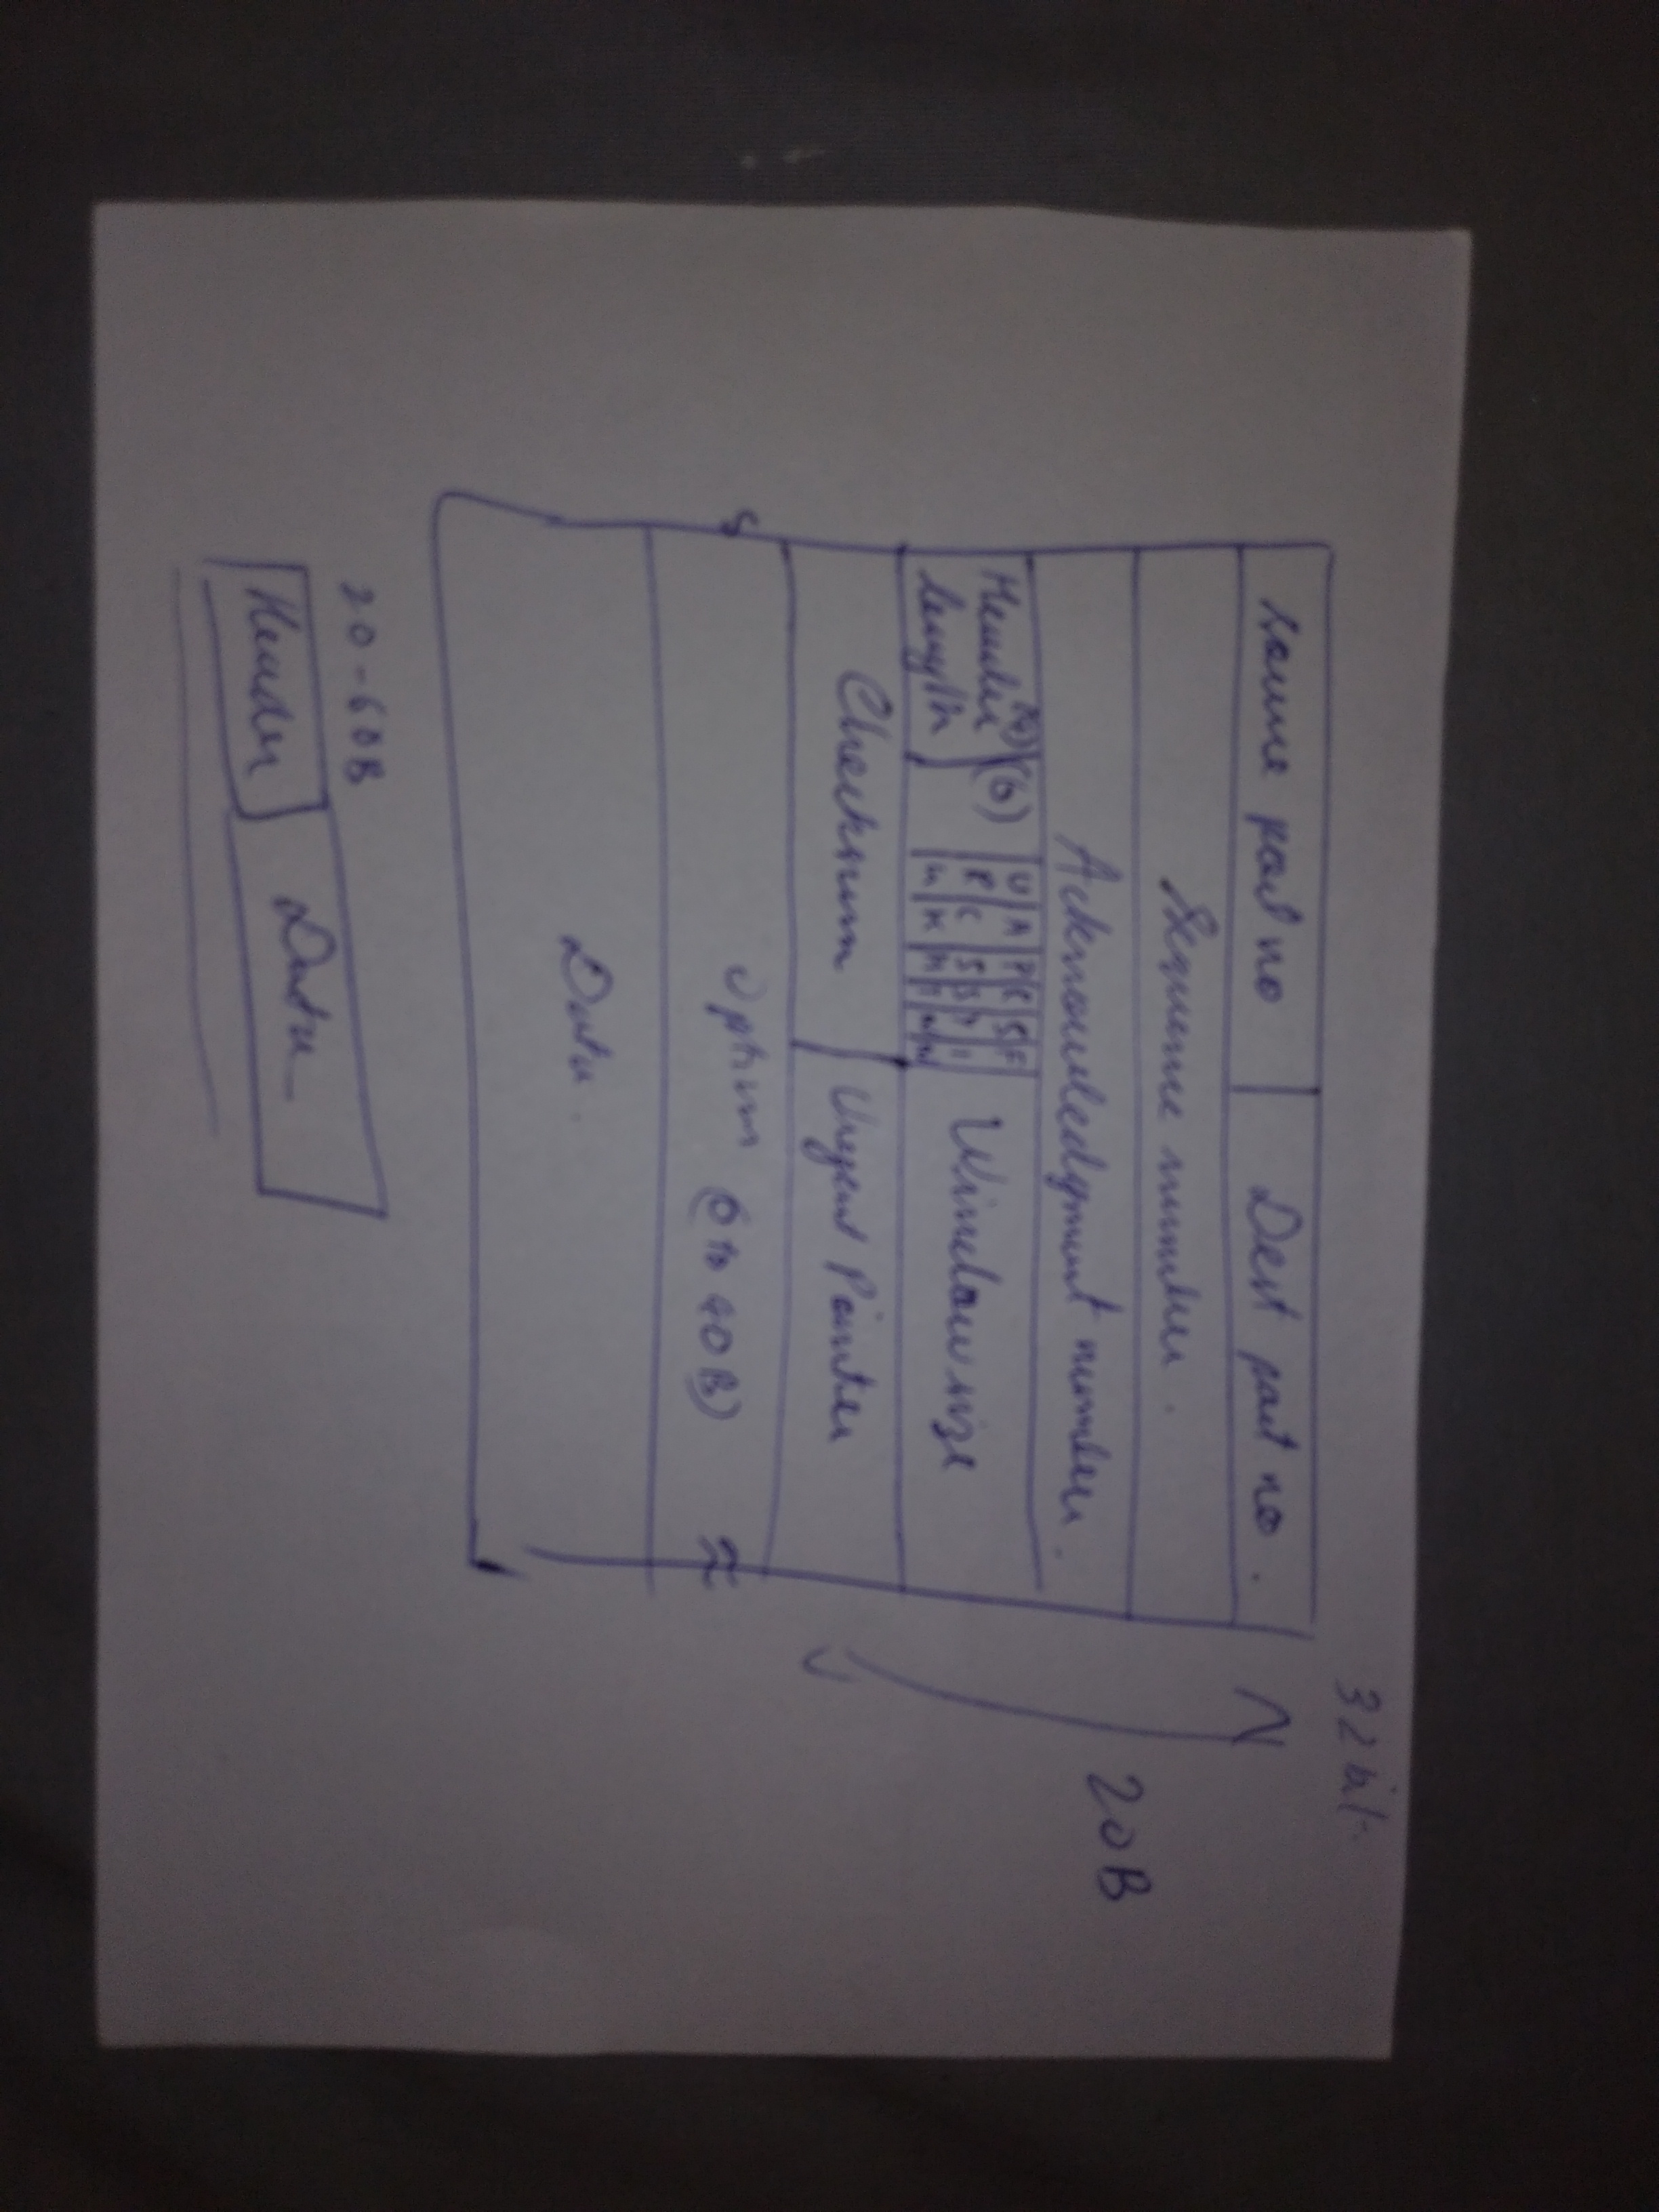 32 bit
Source port no Dest port no.
Sequence number.
Acknowledgment number.
Header length (4) (6) U R G A C K P S H R S T S Y N F I N Window size
Checksum Urgent Pointer
Option (0 to 40B)
Data.
20B
20-60B
Header Data